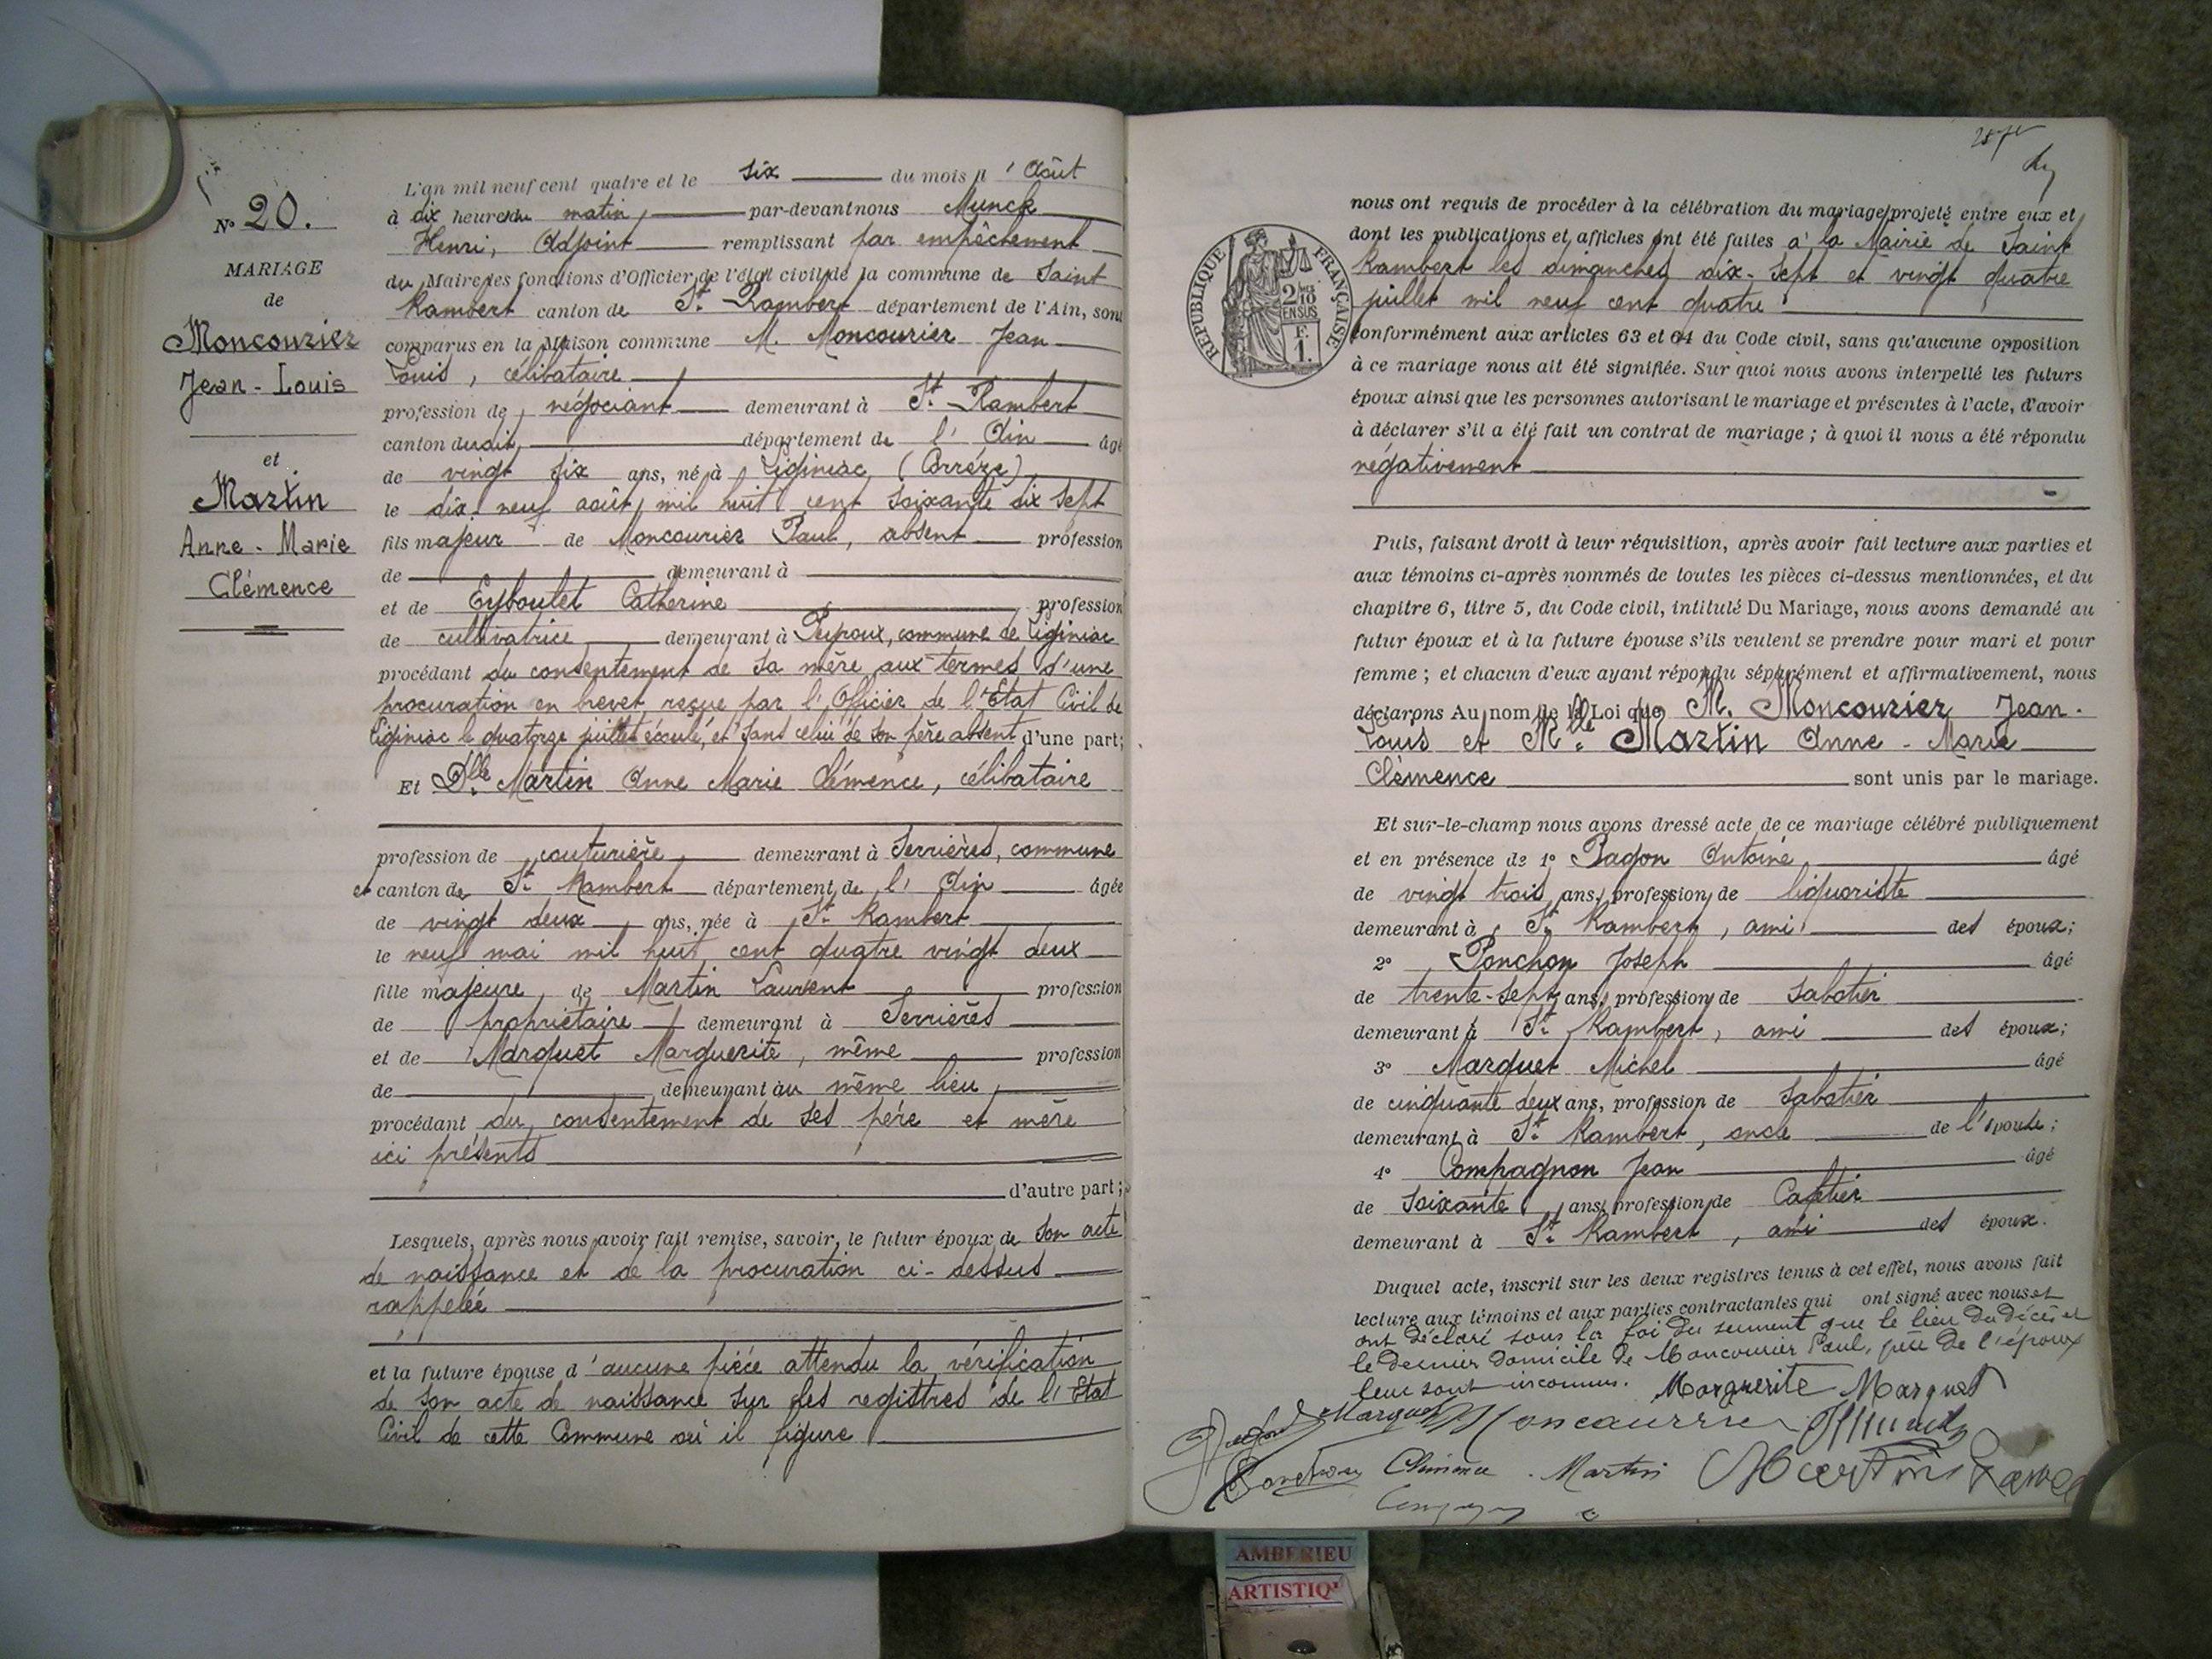 N° 20.
MARIAGE
de
Moncourier
Jean - Louis
et
Martin
Anne - Marie
Clémence
L'an mil neuf cent quatre et le six du mois d'Août
à dix heures du matin, par-devant nous Munck
Henri, Adjoint remplissant par empêchement
du Maire les fonctions d'Officier de l'état civil de la commune de Saint
Rambert canton de St. Rambert département de l'Ain, sont
comparus en la Maison commune M. Moncourier Jean
Louis, célibataire
profession de négociant demeurant à St. Rambert
canton dudit, département de l'Ain âgé
de vingt six ans, né à Liginiac (Corrèze)
le dix-neuf août mil huit cent soixante dix sept
fils majeur de Moncourier Paul, absent profession
de demeurant à
et de Eyboulet Catherine profession
de cultivatrice demeurant à Peyroux, commune de Liginiac
procédant du consentement de sa mère aux termes d'une
procuration en brevet, reçue par l'Officier de l'Etat Civil de
Liginiac le quatorze juillet écoulé, et sans celui de son père absent d'une part;
Et Dlle Martin Anne Marie Clémence, célibataire
profession de couturière demeurant à Serrières, commune
et canton de St. Rambert département de l'Ain âgée
de vingt deux ans, née à St. Rambert
le neuf mai mil huit cent quatre vingt deux
fille majeure de Martin Laurent profession
de propriétaire demeurant à Serrières
et de Marquet Marguerite, même profession
de demeurant au même lieu
procédant du consentement de ses père et mère
ici présents
d'autre part;
Lesquels, après nous avoir fait remise, savoir, le futur époux de son acte
de naissance et de la procuration ci-dessus
rappelée
et la future épouse d'aucune pièce attendu la vérification
de son acte de naissance sur les registres de l'Etat
Civil de cette Commune où il figure
nous ont requis de procéder à la célébration du mariage projeté entre eux et
dont les publications et affiches ont été faites à la Mairie de Saint
Rambert les dimanches dix-sept et vingt quatre
juillet mil neuf cent quatre
RÉPUBLIQUE FRANÇAISE
2/10
EN SUS
F.
1.
conformément aux articles 63 et 64 du Code civil, sans qu'aucune opposition
à ce mariage nous ait été signifiée. Sur quoi nous avons interpellé les futurs
époux ainsi que les personnes autorisant le mariage et présentes à l'acte, d'avoir
à déclarer s'il a été fait un contrat de mariage; à quoi il nous a été répondu
négativement
Puis, faisant droit à leur réquisition, après avoir fait lecture aux parties et
aux témoins ci-après nommés de toutes les pièces ci-dessus mentionnées, et du
chapitre 6, titre 5, du Code civil, intitulé Du Mariage, nous avons demandé au
futur époux et à la future épouse s'ils veulent se prendre pour mari et pour
femme; et chacun d'eux ayant répondu séparément et affirmativement, nous
déclarons Au nom de la Loi que M. Moncourier Jean-
Louis et Mlle Martin Anne-Marie
Clémence sont unis par le mariage.
Et sur-le-champ nous avons dressé acte de ce mariage célébré publiquement
et en présence de 1° Ragon Antoine âgé
de vingt trois ans, profession de liquoriste
demeurant à St. Rambert, ami des époux;
2° Ponchon Joseph âgé
de trente-sept ans, profession de sabotier
demeurant à St. Rambert, ami des époux;
3° Marquet Michel âgé
de cinquante deux ans, profession de sabotier
demeurant à St. Rambert, oncle de l'épouse;
4° Compagnon Jean âgé
de soixante ans, profession de Cafetier
demeurant à St. Rambert, ami des époux.
Duquel acte, inscrit sur les deux registres tenus à cet effet, nous avons fait
lecture aux témoins et aux parties contractantes qui ont signé avec nous et
ont déclaré sous la foi du serment que le lieu du décès et
le dernier domicile de Moncourier Paul, père de l'époux
leur sont inconnus. Marguerite Marquet
Marquet Moncourrier
Ponchon Clémence Martin Martin
AMBERIEU
ARTISTIQ